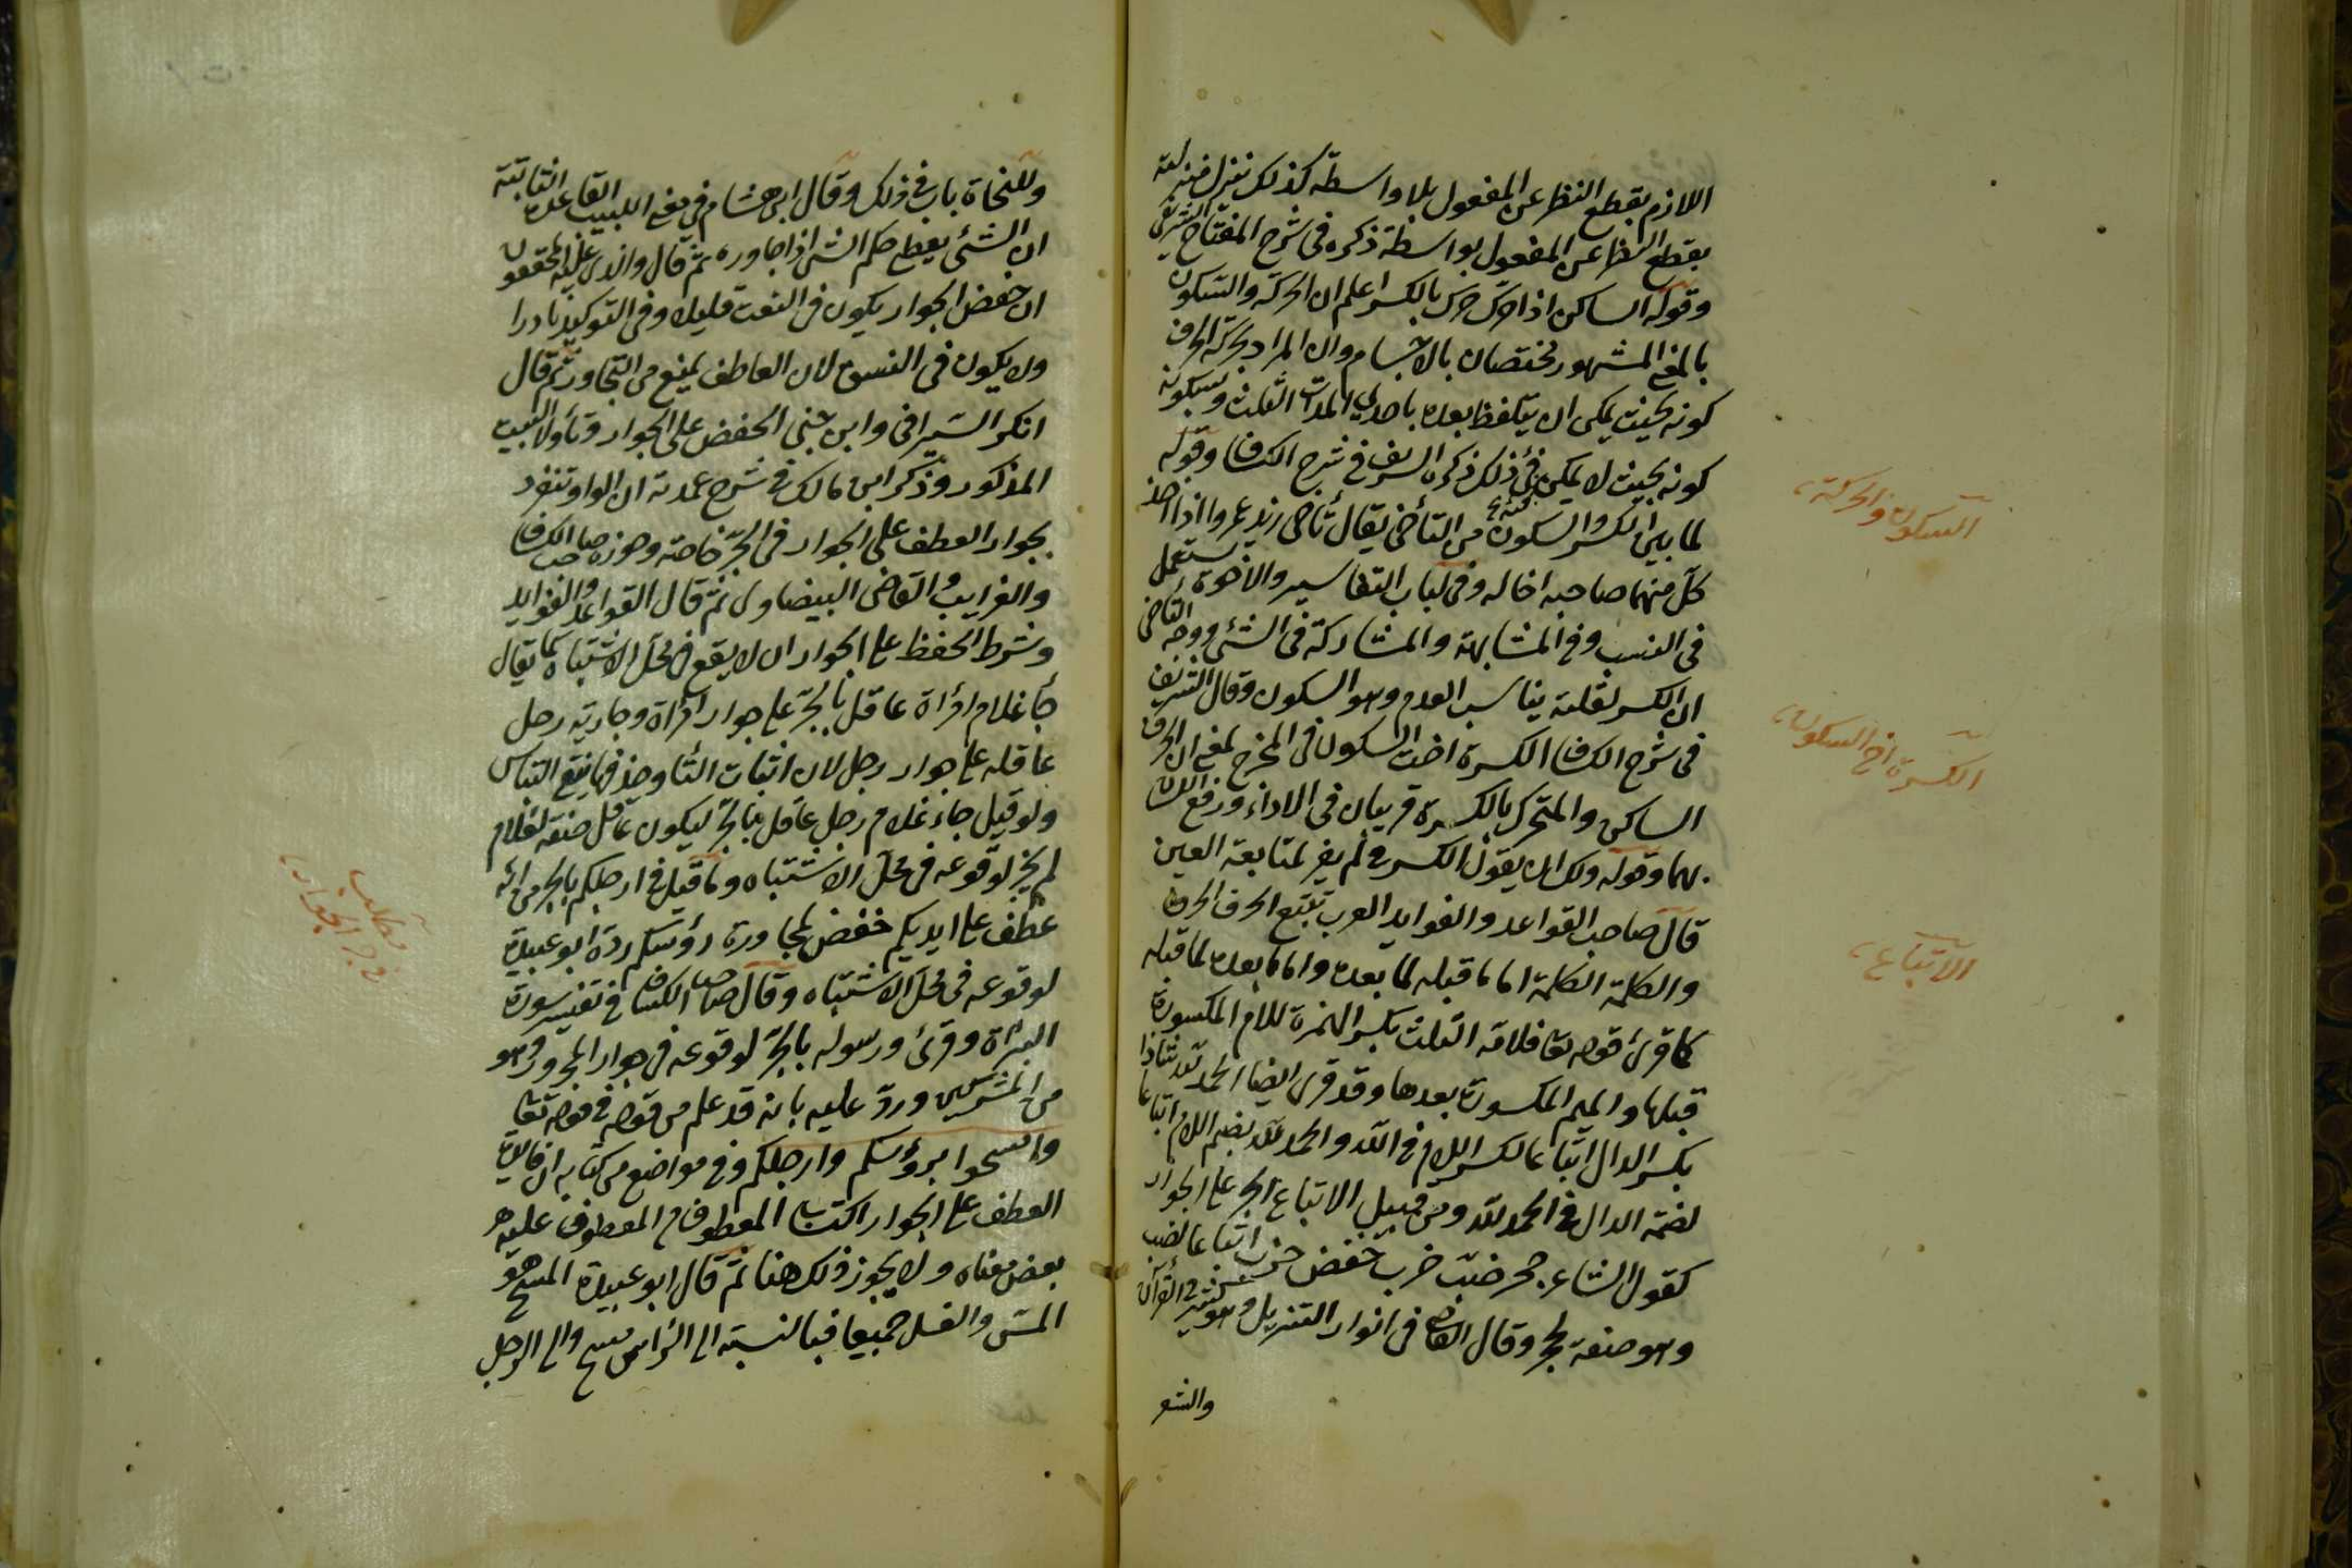 اللازم بقطع النظر عن المفعول بلا واسطة كذلك ينزل منزلته
بقطع النظر عن المفعول بواسطة ذكره في شرح المفتاح الشريفي
وقوله الساكن اذا حرك حرك بالكسر اعلم ان الحركة والسكون
بالمعنى المشهور مختصان بالاجسام وان المراد بحركة الحرف
كونه بحيث يمكن ان يتلفظ بعده باحدي المدات الثلث وبسكونه
كونه بحيث لا يمكن فيه ذلك ذكره الشريف في شرح الكشاف وقوله
لما بين الكسر والسكون من التأخى يقال تأخى زيد عمروا اذا اتخذ
كل منهما صاحبه اخا له وفى لباب التفاسير والاخوة يستعمل
فى النسب وفى المشابهة والمشاركة فى الشئ ووجه التأخى
ان الكسر لقلته يناسب العدم وهو السكون وقال الشريف
فى شرح الكشاف الكسرة اخت السكون فى المخرج بمعنى ان الحرف
الساكن والمتحرك بالكسرة قريبان فى الاداء ورفع اللسان
بهما وقوله ولك ان يقول الكسر فى لم يفر لمتابعة العين
قال صاحب القواعد والفوايد العرب تتبع الحرف الحرف
والكلمة الكلمة اما ما قبله لما بعده واما ما بعده لما قبله
كما قرئ قوله تعا فلامه الثلث بكسر الهمزة للام المكسورة
قبلها والميم المكسورة بعدها وقد قرى ايضا الحمد لله شاذا
بكسر الدال اتباعا لكسر اللام فى لله والحمد لله بضم اللام اتباعا
لضمة الدال فى الحمد لله ومن قبيل الاتباع الجر على الجوار
كقول الشاعر جحر ضب خرب خفض خرب اتباعا لضب
وهو صفة لجحر وقال القاضى فى انوار التنزيل وهو كثير فى القرآن
والشعر
السكون والحركة
الكسرة اخ السكون
الاتباع
وللنحاة باب فى ذلك وقال ابن هشام فى مغنى اللبيب القاعدة الثانية
ان الشئ يعطى حكم الشئ اذا جاوره ثم قال والذى عليه المحققون
ان خفض الجوار يكون فى النعت قليلا وفى التوكيد نادرا
ولا يكون فى النسق لان العاطف يمنع من التجاور ثم قال
انكر السيرافى وابن جنى الخفض على الجوار وتأولا البيت
المذكور وذكر ابن مالك فى شرح عمدته ان الواو تنفرد
بجواز العطف على الجوار فى الجر خاصة وجوزه صاحب الكشاف
والغرايب والقاضى البيضاوى ثم قال القواعد والفوايد
وشرط الخفظ على الجوار ان لا يقع فى محل الاشتباه كما يقال
جأ غلام امرأة عاقل بالجر على جوار امرأة وجارية رجل
عاقلة على جوار رجل لان اثبات التا وحذفها يمنع التباس
ولو قيل جاء غلام رجل عاقل بالجر ليكون عاقل صفة لغلام
لم يجز لوقوعه فى محل الاشتباه وما قيل فى ارجلكم بالجر من انه
عطف على ايديكم خفض لمجاورة رؤسكم رده ابو عبيدة
لوقوعه فى محل الاشتباه وقال صاحب الكشاف فى تفسير سورة
البراة وقرئ ورسوله بالجر لوقوعه فى جوار المجرور وهو
من المشركين ورد عليه بانه قد علم من قوله فى قوله تعا
وامسحوا برؤسكم وارجلكم وفى مواضع من كتابه ان فائدة
العطف على الجوار اكتساب المعطوف من المعطوف عليه
بعض معناه ولا يجوز ذلك هنا ثم قال ابو عبيدة المسح هو
المس والغسل جميعا فبالنسبة الى الرأس مسح والى الرجل
مطلب
فى جر الجوار